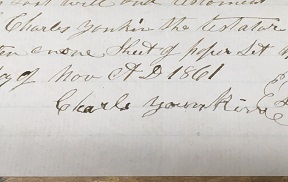 last will and testament
Charles yonkin the testator
on one Sheet of paper Set
of Nov A D 1861
Charls younkin